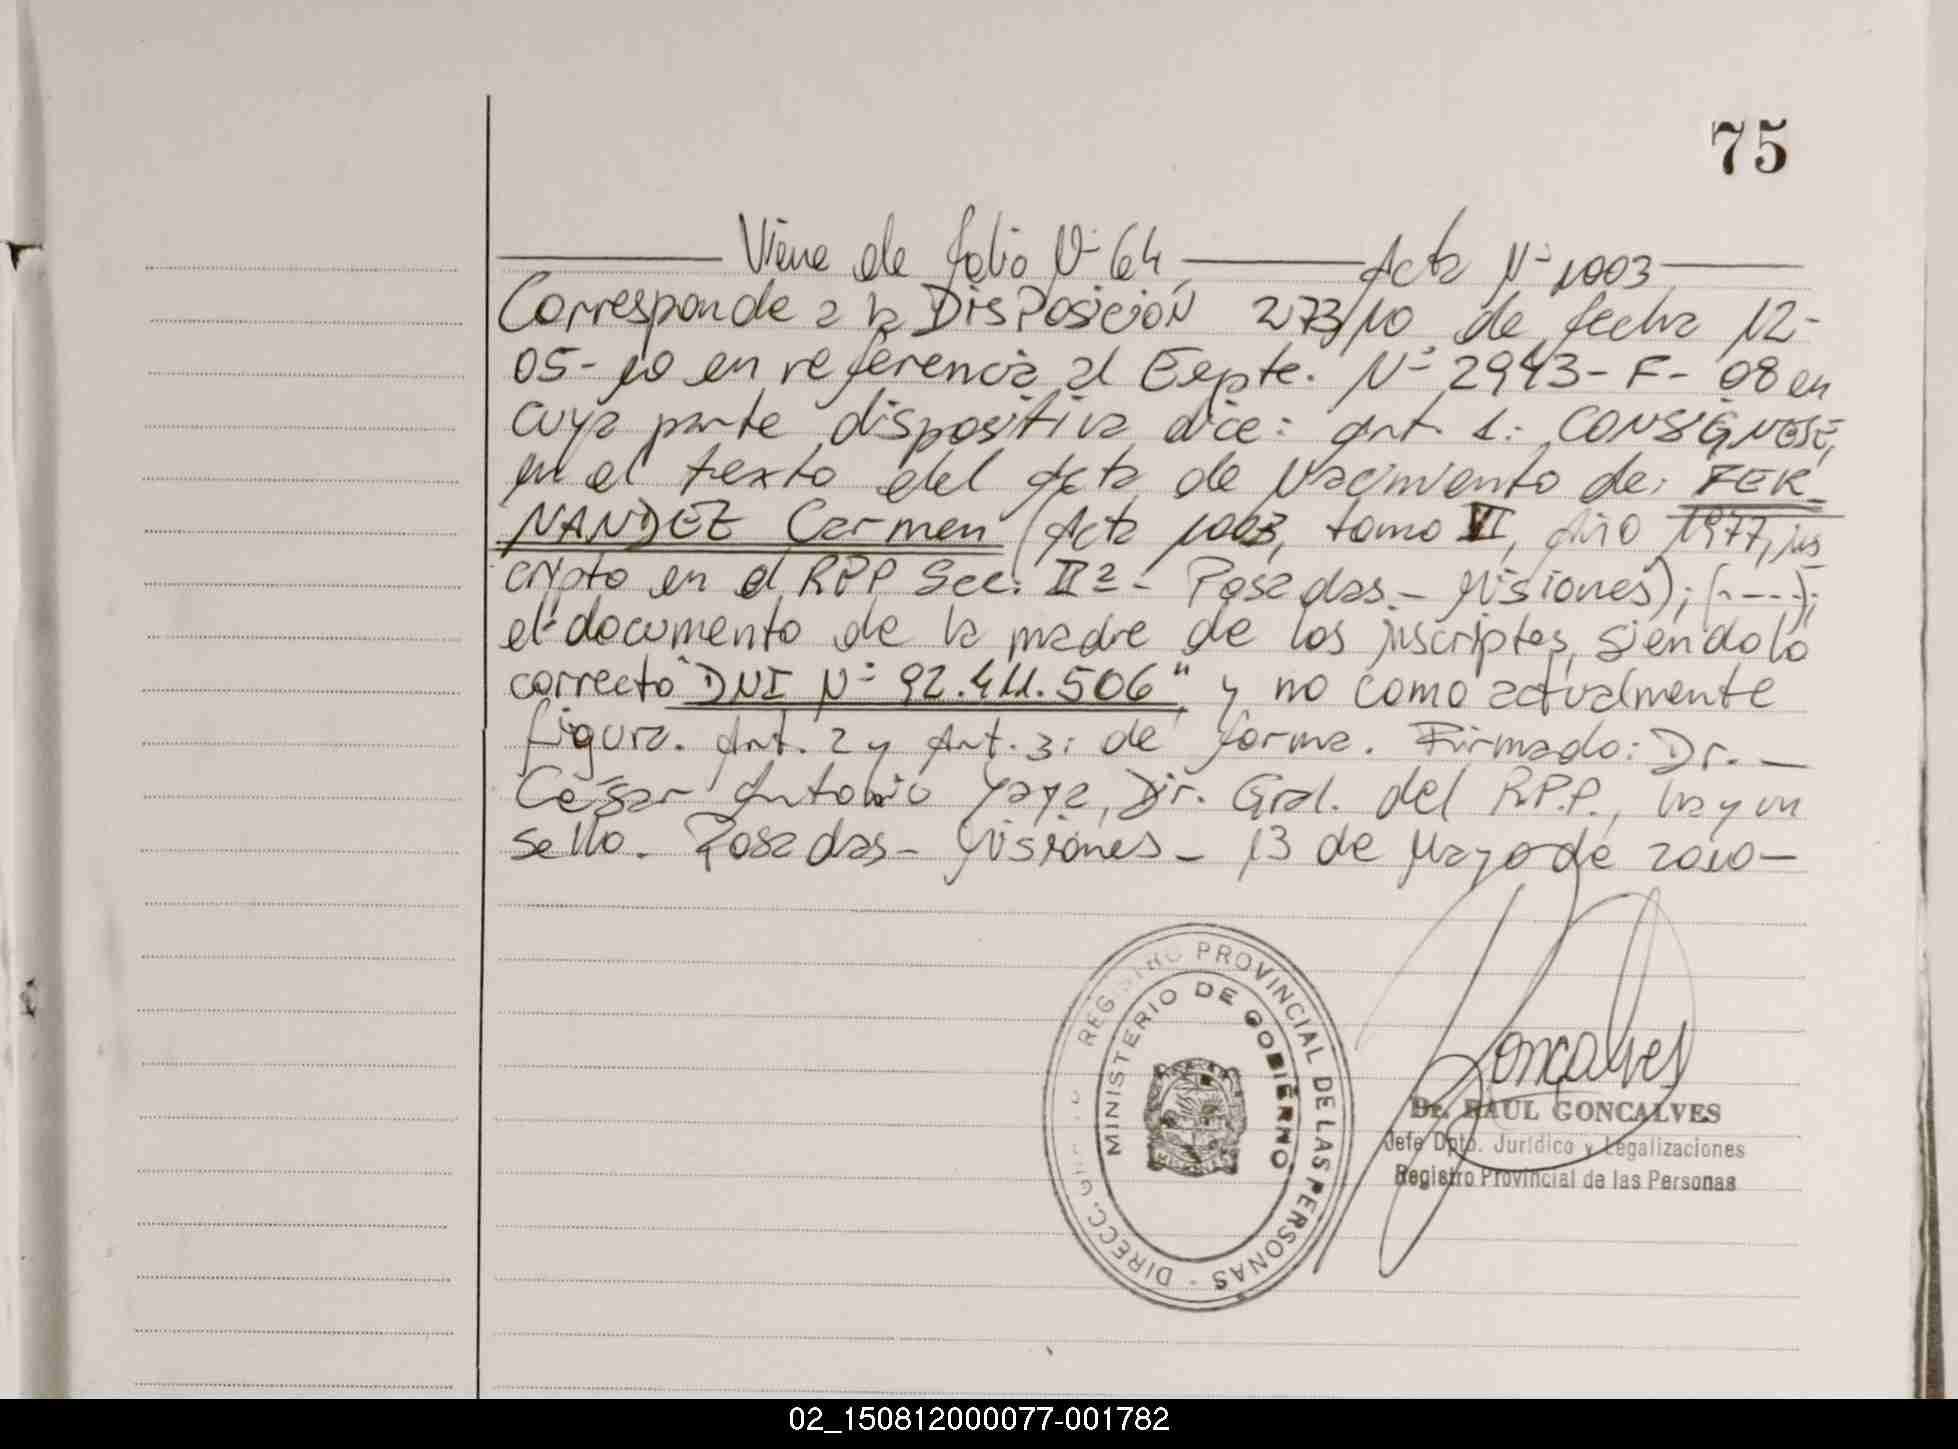 75
Viene de folio Nº 64, Acta Nº 1003
Corresponde a la DisPosición 273/10 de fecha 12-
05-10 en referencia al Expte. Nº 2943-F-08 en
cuya parte dispositiva dice: Art. 1: CONSIGNESE,
en el texto del Acta de Nacimiento de: FER-
NANDEZ Carmen (Acta 1003, tomo VI, Año 1977, ins
cripto en el RPP Sec. IIª - Posadas - Misiones); (----);
el documento de la madre de los inscriptos, siendo lo
correcto "DNI Nº 92.411.506", y no como actualmente
figura. Art. 2 y Art. 3: de forma. Firmado: Dr. —
César Antonio Yaya, Dir. Gral. del R.P.P., hay un
sello. Posadas - Misiones - 13 de Mayo de 2010 —
REGISTRO PROVINCIAL DE LAS PERSONAS - DIRECC. GRAL
MINISTERIO DE GOBIERNO
MISIONES
Gonçalves
Dr. RAUL GONCALVES
Jefe Dpto. Jurídico y Legalizaciones
Registro Provincial de las Personas
02_150812000077-001782